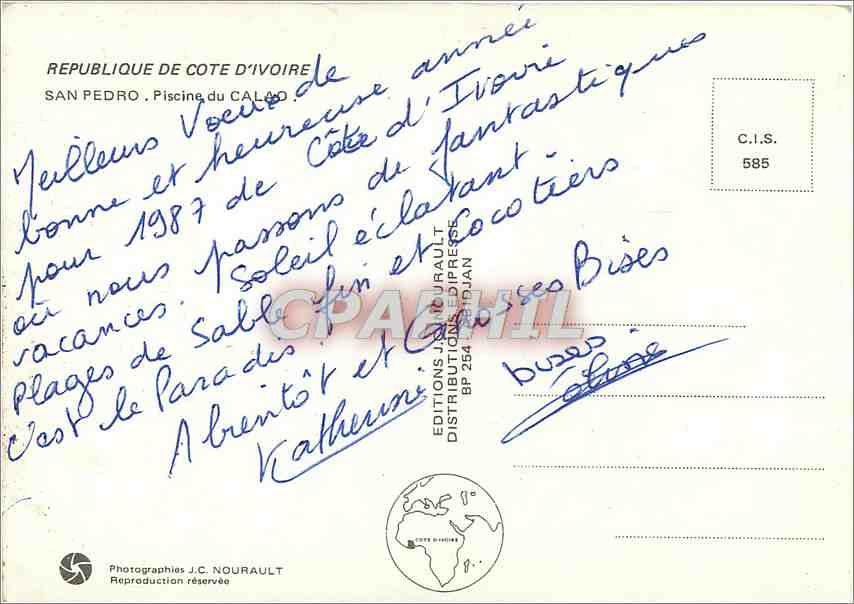 REPUBLIQUE DE COTE D'IVOIRE
SAN PEDRO . Piscine du CALAO .
Meilleurs Voeux de
bonne et heureuse année
pour 1987 de Côte d'Ivoire
où nous passons de fantastiques
vacances. Soleil éclatant.
Plages de Sable fin et Cocotiers
C'est le Paradis!
A bientôt et Grosses Bises
Katherine
bises
C.I.S.
585
EDITIONS J.C. NOURAULT
DISTRIBUTIONS EDIPRESSE
BP 254 ABIDJAN
CPAPHIL
COTE D'IVOIRE
Photographies J.C. NOURAULT
Reproduction réservée